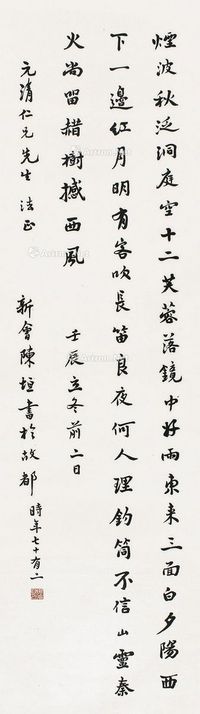 煙波秋泛洞庭空十二芙蓉落鏡中好雨東來三面白夕陽西
下一邊紅月明有客吹長笛良夜何人理釣筒不信山靈秦
火尚留赭樹撼西風
壬辰立冬前二日
元清仁兄先生法正
新會陳垣書於故都時年七十有二